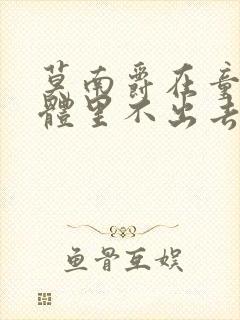 莫南爵在童
體里不出去
鱼骨互娱